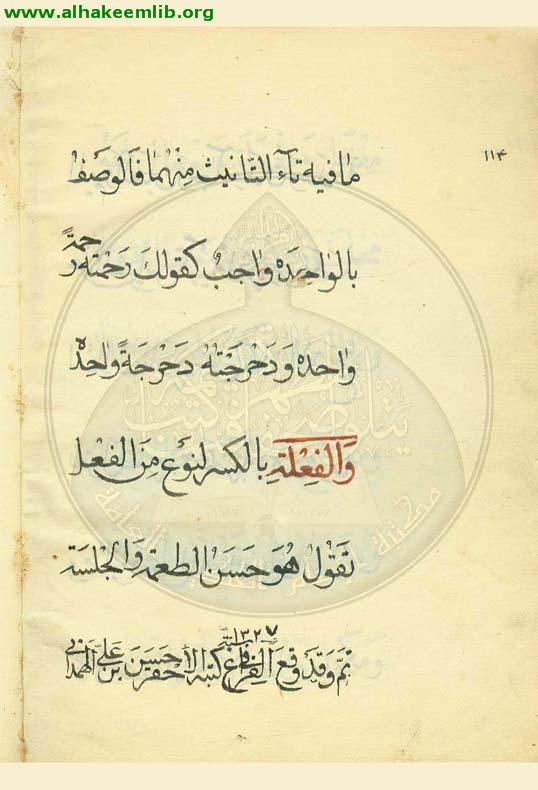 www.alhakeemlib.org
١١۴
مٰا فيه تآء التّانيث مِنْهمٰا فَالوَصَفُ
بالوٰاحِدَه وٰاجبٌ كقولك رَحْمته رَحمةً
وٰاحده وَدَحْرَجْتهُ دَحْرجَةً وٰاحِده
وَالفِعْلة بالكسر لنوَعٍ مِنَ الفعل
تقولُ هُوَ حَسَنُ الطعمة وَالجلسَة
١٣٢٧
تمّ وَقد وَقع الفراغ كتبه الأحقر حسين بن علىّ